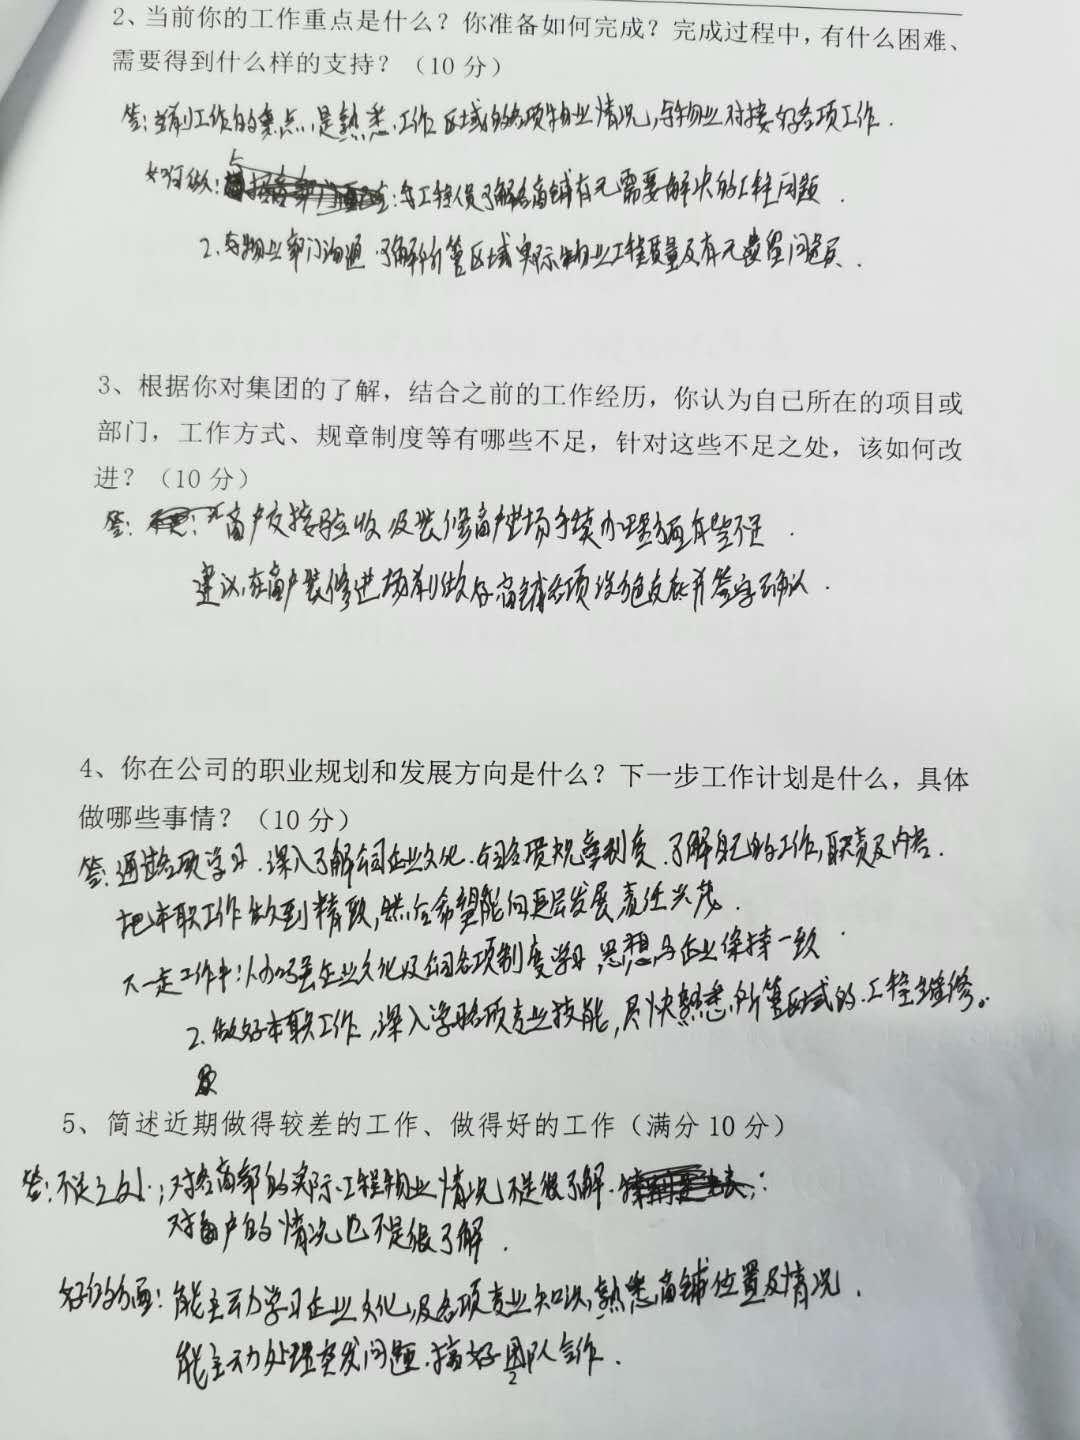 2、当前你的工作重点是什么？你准备如何完成？完成过程中，有什么困难、
需要得到什么样的支持？（10 分）
答：当前工作的重点，是熟悉工作区域的各项物业情况，与物业对接好各项工作．
如何做：与工程人员了解各商铺有无需要解决的工程问题．
2．与物业部门沟通．了解所管区域实际物业工程质量及有无遗留问题．
3、根据你对集团的了解，结合之前的工作经历，你认为自已所在的项目或
部门，工作方式、规章制度等有哪些不足，针对这些不足之处，该如何改
进？（10 分）
答：商户交接验收及装修商户进场手续办理方面有些不足．
建议，在商户装修进场前做好商铺各项设施交底并签字确认．
4、你在公司的职业规划和发展方向是什么？下一步工作计划是什么，具体
做哪些事情？（10 分）
答：通过各项学习．深入了解公司企业文化．公司各项规章制度．了解自己的工作，职责及内容．
把本职工作做到精致，然后希望能向更层发展，
下一步工作中：1．加强企业文化及公司各项制度学习，思想与企业保持一致．
2．做好本职工作，深入学习各项专业技能，尽快熟悉所管区域的工程维修。
5、简述近期做得较差的工作、做得好的工作（满分 10 分）
答：不足之处：对各商部的实际工程物业情况不是很了解．
对商户的情况也不是很了解．
好的方面：能主动学习企业文化，及各项专业知识，熟悉商铺位置及情况．
能主动处理突发问题．搞好团队合作．
2